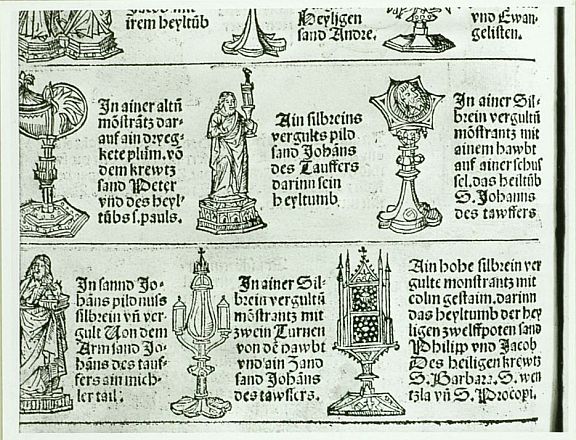 Jacob mit
irem heyltūb
Heyligen
sand Andre.
vnd Ewan-
gelisten.
In ainer altñ
mōstrātz dar-
auf ain dryeg-
kete plům. võ
dem krewtz
sand Peter
vnd des heyl-
tůbs s. pauls.
Ain silbreins
vergults pild
sand Johãns
des Tauffers
darinn sein
heyltumb
In ainer Sil-
brein vergultñ
mōnstrantz mit
ainem hawbt
auf ainer schus
sel. das heiltūb
S. Johanns
des tawffers
In sannd Jo-
hãns pild nuss
silbrein vñ ver-
gult Von dem
Arm sand Jo-
hãns des tauf-
fers ain mich-
ler tail.
In ainer Sil-
brein vergultñ
mōstrantz mit
zwein Turnen
von dē hawbt
vnd ain Zand
sand Johãns
des tawffers.
Ain hohe silbrein ver
gulte monstrantz mit
edlin gestaim. darinn
das heyltumb der hey
ligen zwelffpoten sand
Philipp vnd Jacob
Des heiligen krewtz
S. Barbara. S. wen
tzla vñ S. Procopi.